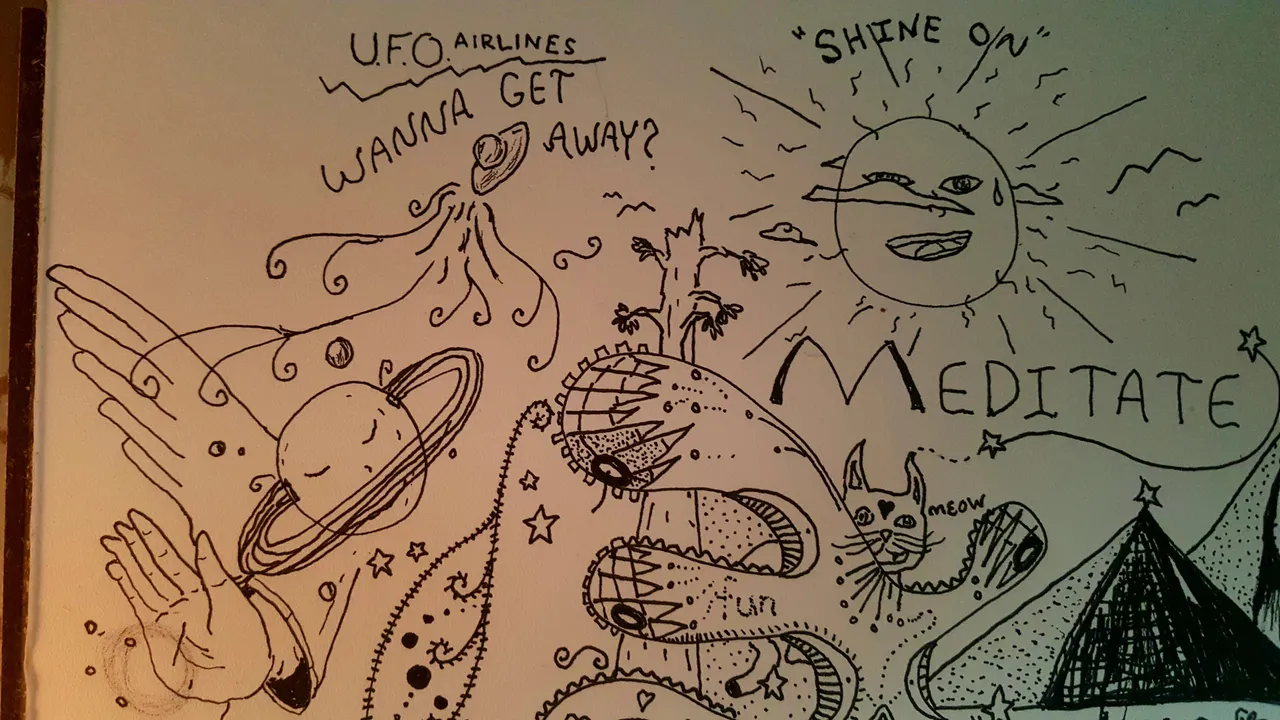 U.F.O. AIRLINES
WANNA GET
AWAY?
"SHINE ON"
MEDITATE
MEOW
fun